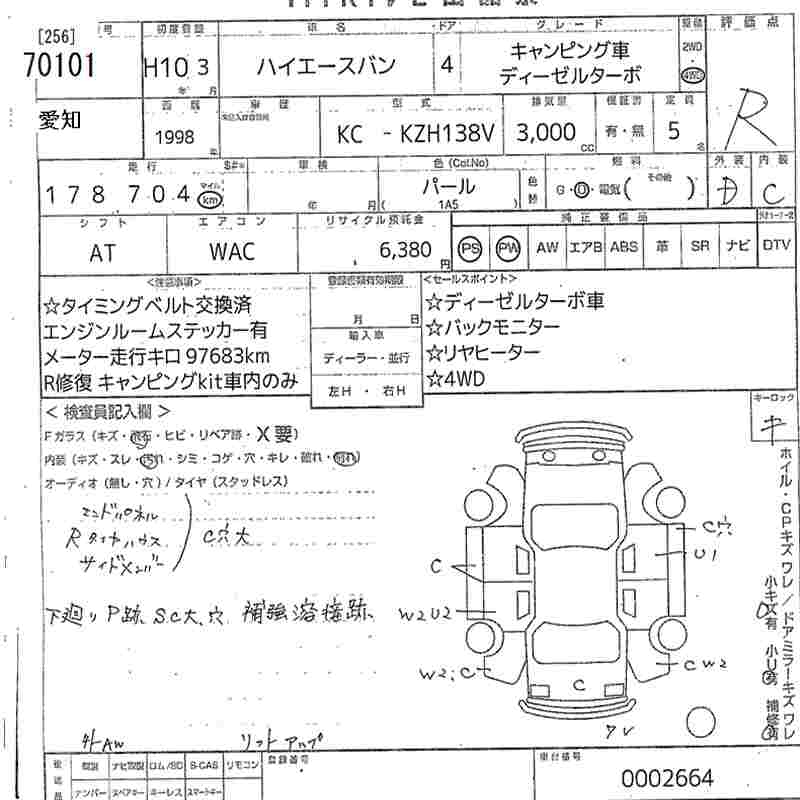 [256] 号 初度登録 車名 ドア グレード 駆動 評価点
70101 H10 3 ハイエースバン 4 キャンピング車 2WD
年 月 ディーゼルターボ 4WD
愛知 西暦 車歴 型式 排気量 保証書 定員 R
1998 年 KC - KZH138V 3,000 CC 有・無 5 名
走行 車検 色(Col.No) 燃料 外装 内装
178 704 マイル km 年 月 パール ( 1A5 ) 色替 G・D・電気( その他 ) D C
シフト エアコン リサイクル預託金 純正装備品
AT WAC 6,380 円 PS PW AW エアB ABS 革 SR ナビ DTV
<注意事項> 登録書類有効期限 <セールスポイント>
☆タイミングベルト交換済 ☆ディーゼルターボ車
エンジンルームステッカー有 月 日 ☆バックモニター
メーター走行キロ 97683km 輸入車 ☆リヤヒーター
R修復 キャンピングkit車内のみ ディーラー・並行 ☆4WD
左H ・ 右H
キーロック
キ
< 検査員記入欄 >
Fガラス (キズ・飛石・ヒビ・リペア跡・X要)
内装 (キズ・スレ・汚れ・シミ・コゲ・穴・キレ・破れ・割れ)
オーディオ (無し・穴) / タイヤ (スタッドレス)
エンドパネル
Rタイヤハウス C穴大
サイドメンバー
下廻り P跡、S.C大、穴、補強溶接跡、
C穴
U1
C
W2U2
W2;C
CW2
C
アレ
ホイル・CPキズ ワレ / ドアミラーキズ ワレ
小キズ有 小U有 補修有
社AW リフトアップ
後送品 取説 ナビ取説 ロム/SD B-CAS リモコン 登録番号 車台番号
ナンバー スペアキー キーレス スマートキー 0002664